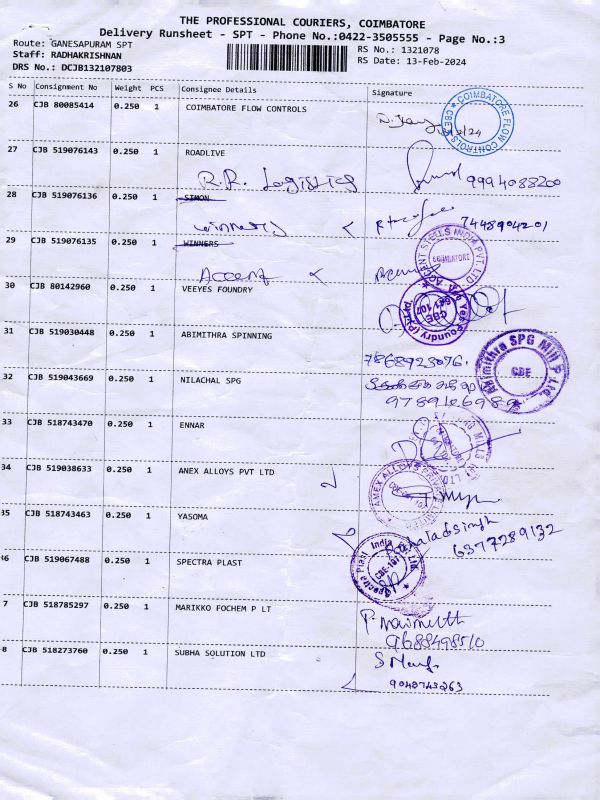 THE PROFESSIONAL COURIERS, COIMBATORE
Delivery Runsheet - SPT - Phone No.:0422-3505555 - Page No.:3
Route: GANESAPURAM SPT
RS No.: 1321078
Staff: RADHAKRISHNAN
RS Date: 13-Feb-2024
DRS No.: DCJB132107803
S No Consignment No Weight PCS Consignee Details Signature
26 CJB 80085414 0.250 1 COIMBATORE FLOW CONTROLS
COIMBATORE FLOW CONTROLS CBE
27 CJB 519076143 0.250 1 ROADLIVE
R.R. Logistics 9994088200
28 CJB 519076136 0.250 1 SIMON
winners 7448904201
29 CJB 519076135 0.250 1 WINNERS
ACCENT STEELS INDIA PVT. LTD. COIMBATORE
Accent
30 CJB 80142960 0.250 1 VEEYES FOUNDRY
Vee Yes Foundry (P) Ltd. CBE 641 107
31 CJB 519030448 0.250 1 ABIMITHRA SPINNING
Abimithra SPG Mill P Ltd. CBE
7868923076.
32 CJB 519043669 0.250 1 NILACHAL SPG
9789106989
33 CJB 518743470 0.250 1 ENNAR
34 CJB 519038633 0.250 1 ANEX ALLOYS PVT LTD
35 CJB 518743463 0.250 1 YASOMA
6377289132
46 CJB 519067488 0.250 1 SPECTRA PLAST
Spectra Plast India Pvt. Ltd. CBE-107
7 CJB 518785297 0.250 1 MARIKKO FOCHEM P LT
9688498510
8 CJB 518273760 0.250 1 SUBHA SOLUTION LTD
9048743263